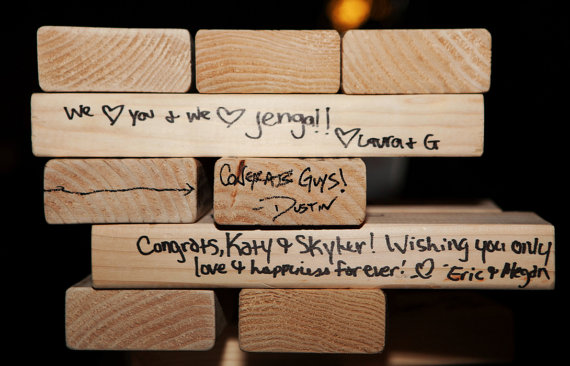 We ♡ you & we ♡ jenga!!
♡ Laura + G
CONGRATS GUYS!
- DUSTIN
Congrats, Katy & Skyler! Wishing you only
love & happiness forever! ♡ Eric & Megan